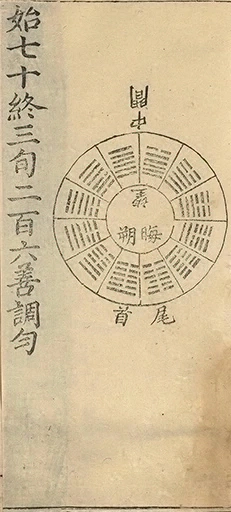 中間
望
晦朔
尾首
始七十終三旬二百六善調勻